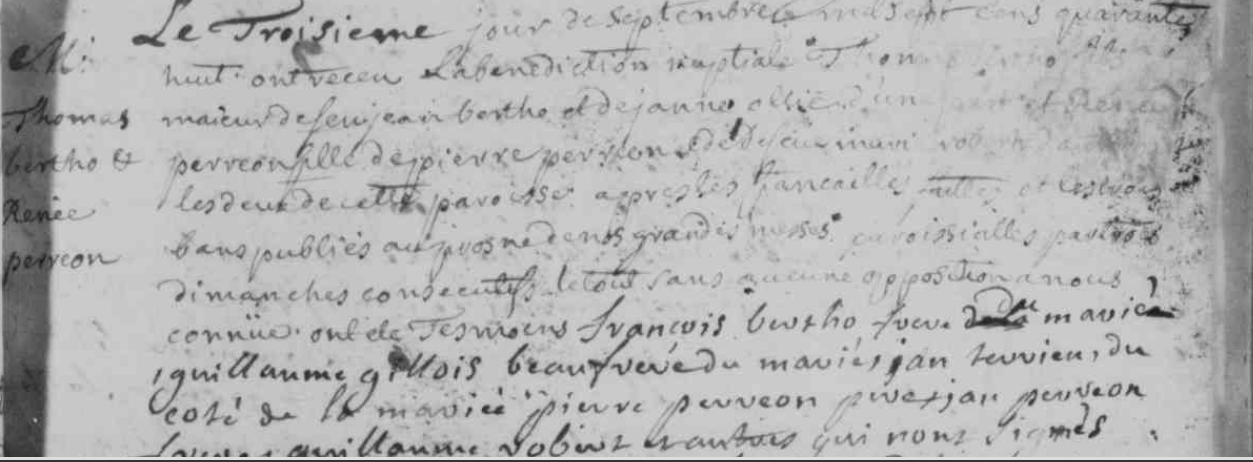 M:
Thomas
bertho &
Renée
perreon
Le Troisieme jour de Septembre mil Sept Cens quarantes
huit ont receu La benediction nuptiale Thomas bertho fils
maieur de feu jean bertho et de janne ollier d'une part et Renée
perreon fille de pierre perreon & de
les deux de cette paroisse apres les fiancailles faittes et les trois
bans publiés au prosne de nos grandes messes paroissialles par trois
dimanches consecutifs le tout sans aucune opposition a nous
connüe ont ete Tesmoens françois bertho frere du marié
guillaume gillois beaufrere du marié, jan terrien, du
coté de la mariée pierre perreon pere, jan perreon
frere, guillaume robert et autres qui n'ont Signés